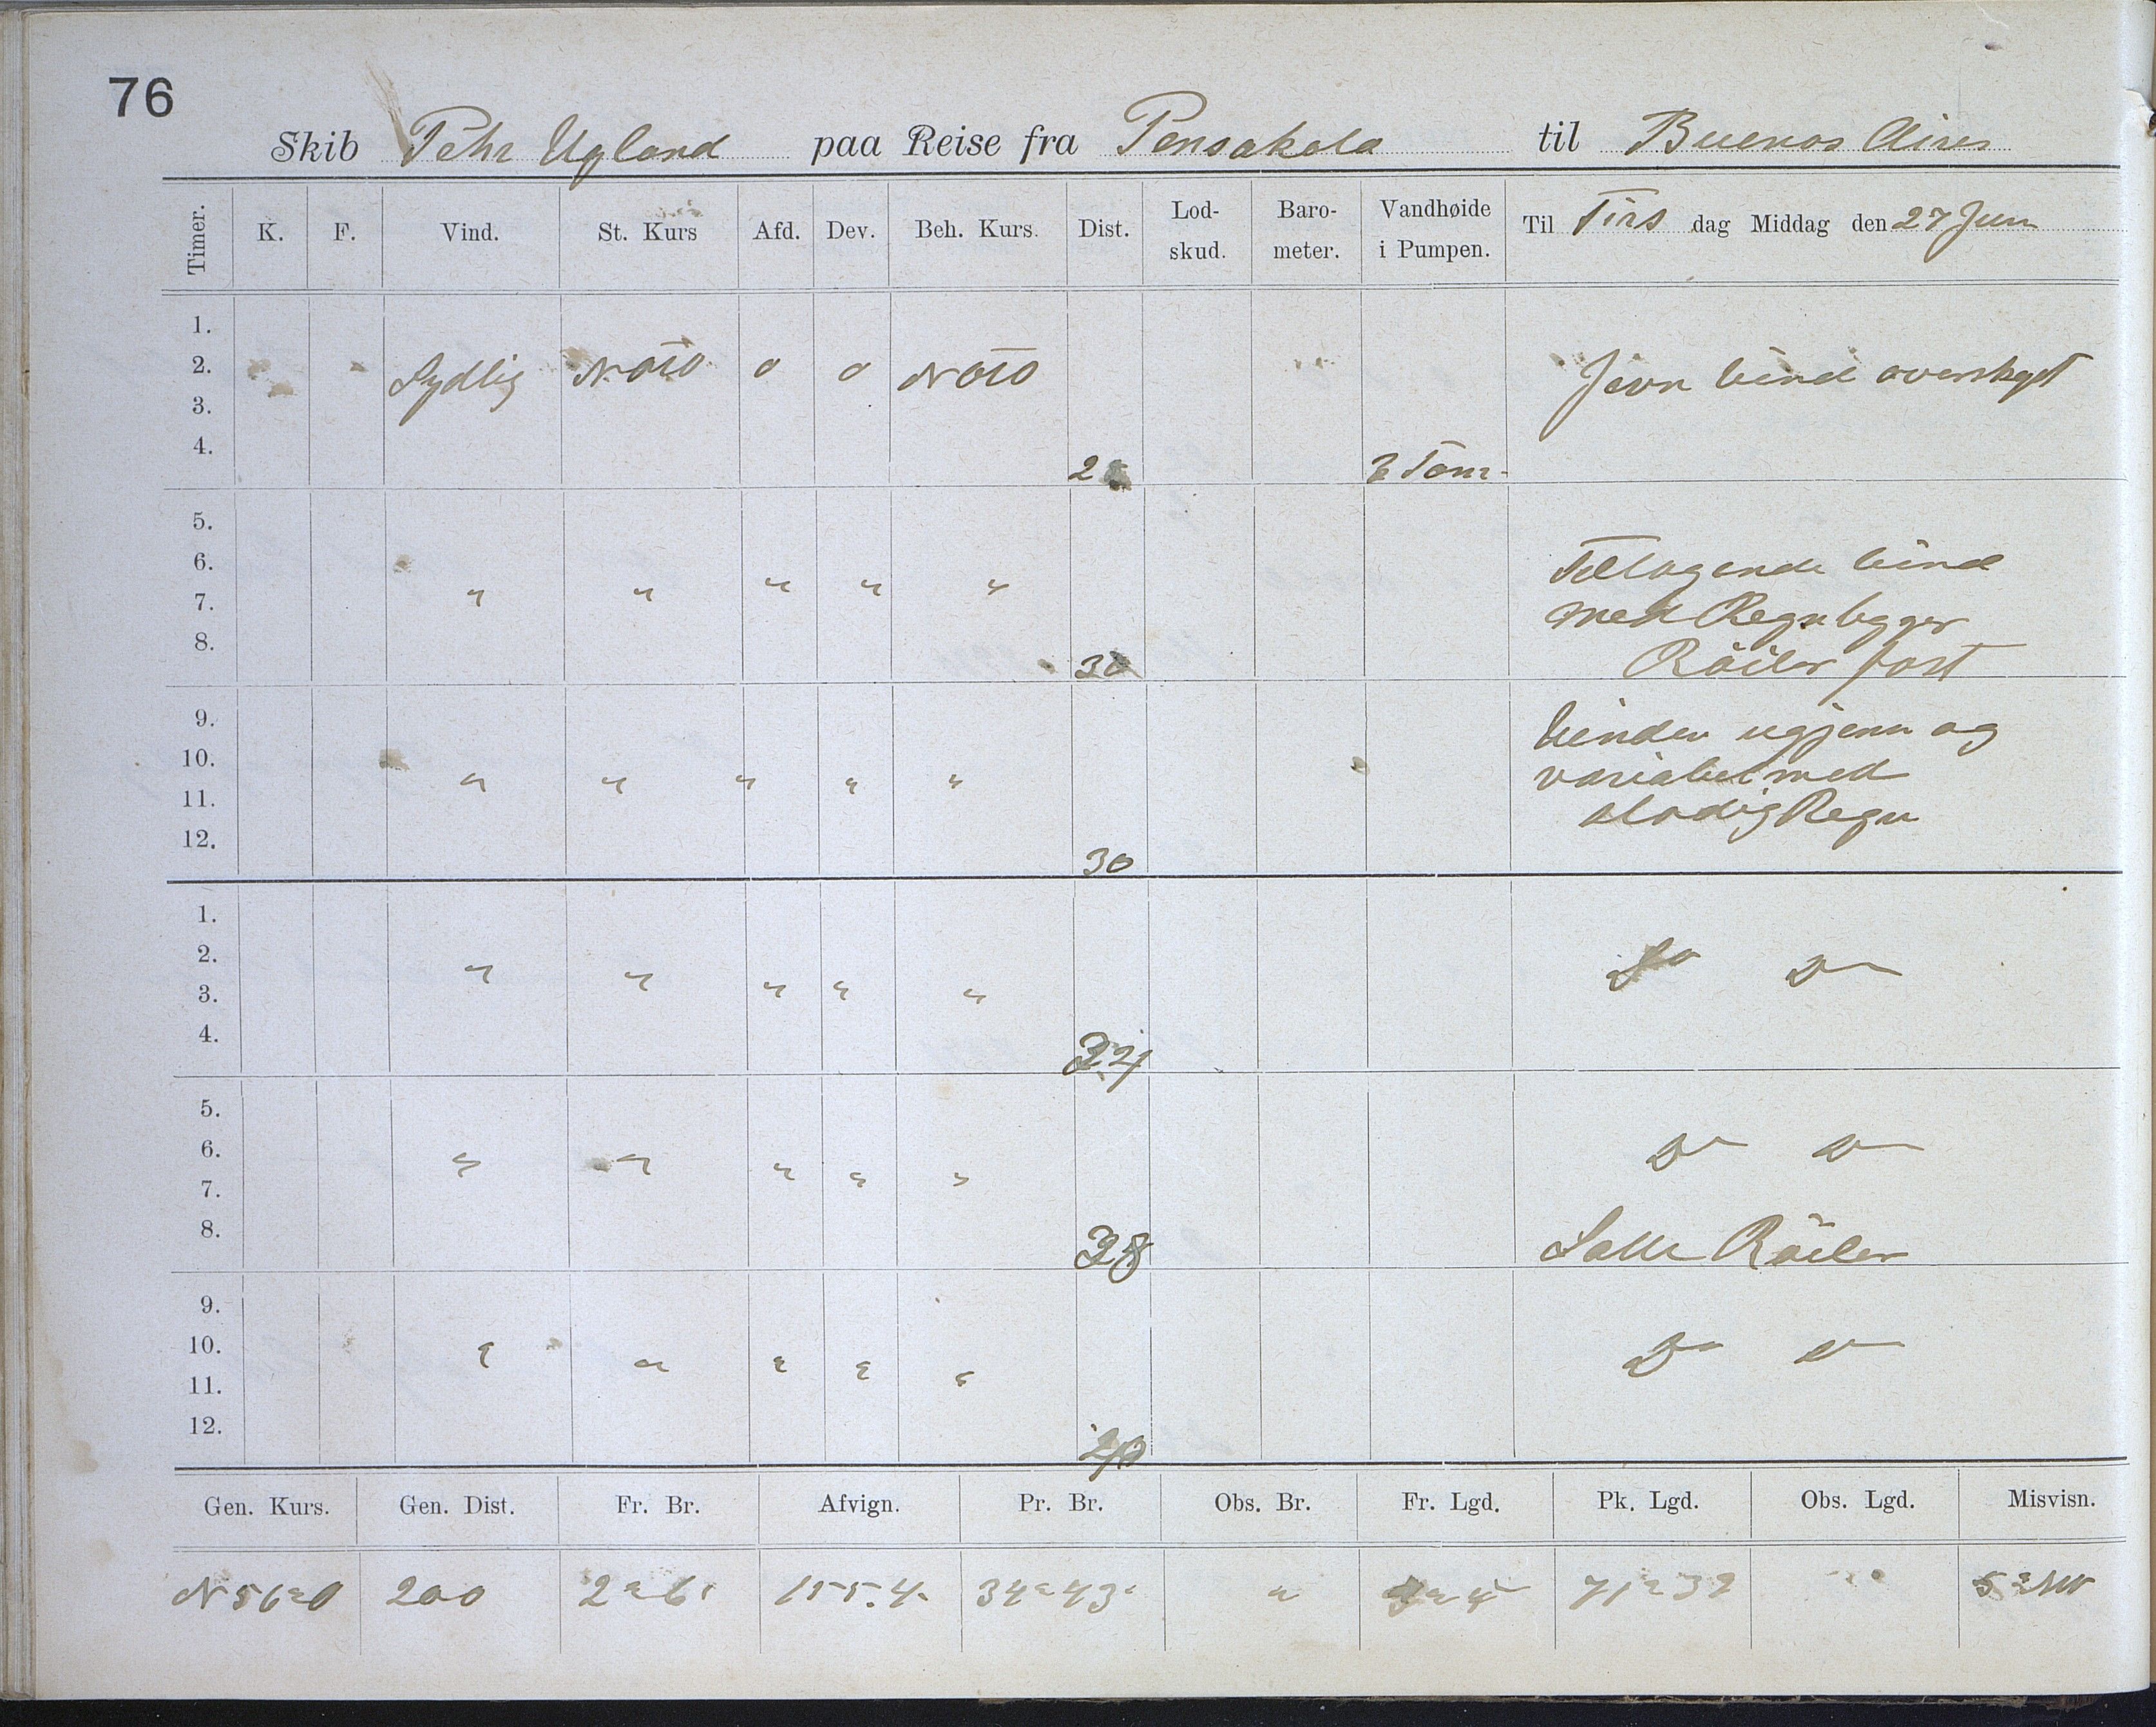 76
Skib Pehr Ugland paa Reise fra Pensakola til Buenos Aires
Timer. K. F. Vind. St. Kurs Afd. Dev. Beh. Kurs. Dist. Lod-skud. Baro-meter. Vandhøide i Pumpen. Til Tirs dag Middag den 27 Juni
1.
2. Sydlig NOtO 0 0 NOtO Jevn bind overskyet
3.
4. 2 3 Tom.
5.
6. Tiltagende bind
7. " " " " " med Regnbyger
8. 30 Röiler fast
9. binden ugjevn og
10. " " " " " variabel med
11. stadig Regn
12. 30
1.
2. " " Do Do
3. " " "
4. 34
5.
6. " " " " " Do Do
7.
8. 38 Salte Röiler
9.
10. " " " " " Do Do
11.
12. 40
Gen. Kurs. Gen. Dist. Fr. Br. Afvign. Pr. Br. Obs. Br. Fr. Lgd. Pk. Lgd. Obs. Lgd. Misvisn.
N 56° O 200 2° 6' 155.4. 34° 43' " 71° 32